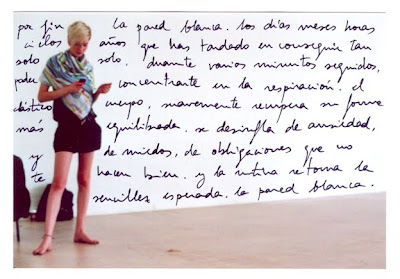 por fin la pared blanca. los días meses horas
ciclos años que has tardado en conseguir tan
solo solo. durante varios minutos seguidos,
poder concentrarte en la respiración. el
elástico cuerpo, suavemente recupera su forma
más equilibrada. se desinfla de ansiedad,
y de miedos, de obligaciones que no
te hacen bien. y la rutina retorna la
sencillez esperada. la pared blanca.